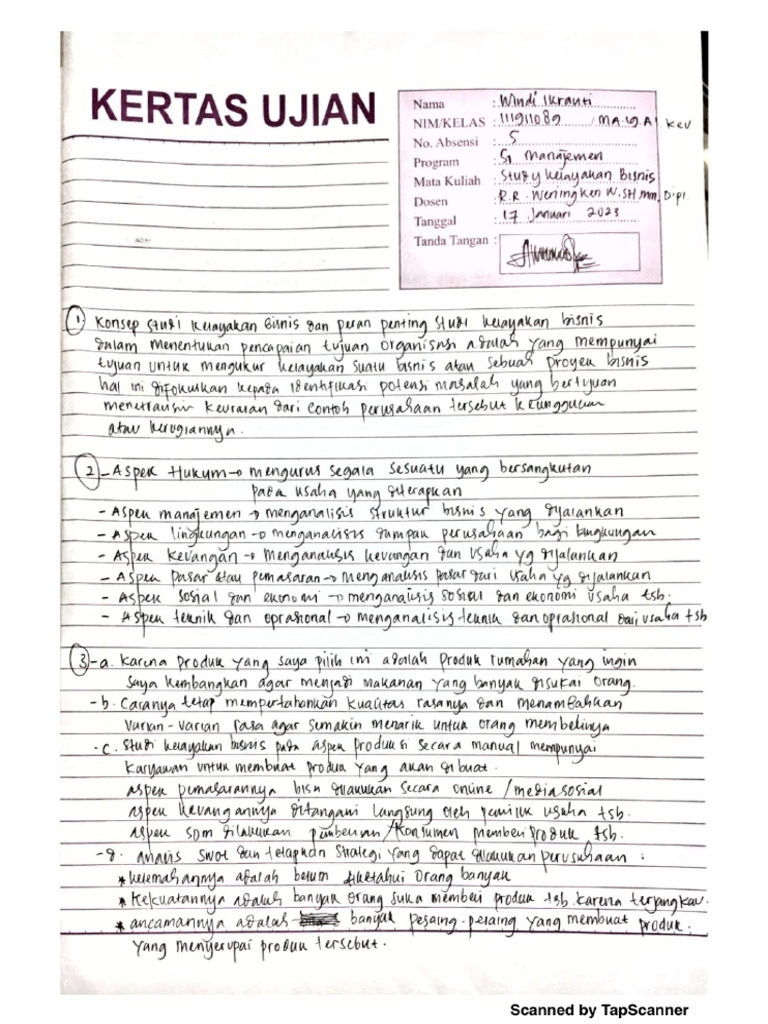 KERTAS UJIAN
Nama : Windi Ikranti
NIM/KELAS : 111911089 / MA.19.A Keu
No. Absensi : 5
Program : S1 Manajemen
Mata Kuliah : Study Kelayakan Bisnis
Dosen : R.R. Weningken W, SH, mm, Dipl
Tanggal : 17 Januari 2023
Tanda Tangan :
1. Konsep studi kelayakan Bisnis dan peran penting studi kelayakan bisnis
dalam menentukan pencapaian tujuan organisasi adalah yang mempunyai
tujuan untuk mengukur kelayakan suatu bisnis atau sebuah proyek bisnis
hal ini difokuskan kepada identifikasi potensi masalah yang bertujuan
dari contoh perusahaan tersebut
atau kerugiannya.
2 - Aspek Hukum → mengurus segala sesuatu yang bersangkutan
pada usaha yang diterapkan
- Aspek manajemen → menganalisis struktur bisnis yang dijalankan
- Aspek lingkungan → menganalisis dampak perusahaan bagi lingkungan
- Aspek keuangan → menganalisis keuangan dan usaha yg dijalankan
- Aspek pasar atau pemasaran → menganalisis pasar dari usaha yg dijalankan
- Aspek sosial dan ekonomi → menganalisis sosial dan ekonomi usaha tsb.
- Aspek teknik dan oprasional → menganalisis teknik dan oprasional dari usaha tsb
3 - a. Karena produk yang saya pilih ini adalah produk rumahan yang ingin
saya kembangkan agar menjadi makanan yang banyak disukai orang.
- b. Caranya tetap mempertahankan kualitas rasanya dan menambahkan
varian-varian rasa agar semakin menarik untuk orang membelinya
- c. Studi kelayakan bisnis pada aspek produksi secara manual mempunyai
karyawan untuk membuat produk yang akan dibuat.
aspek pemasarannya bisa dilakukan secara online / media sosial
aspek keuangannya ditangani langsung oleh pemilik usaha tsb.
aspek SDM dilakukan / konsumen membeli produk tsb.
- d. analis swot dan tetapkan strategi yang dapat dilakukan perusahaan :
* kelemahannya adalah belum diketahui orang banyak
* Kekuatannya adalah banyak orang suka membeli produk tsb. karena terjangkau.
* ancamannya adalah banyak pesaing-pesaing yang membuat produk.
yang menyerupai produk tersebut.
Scanned by TapScanner